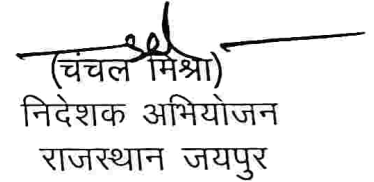 (चंचल मिश्रा)
निदेशक अभियोजन
राजस्थान जयपुर